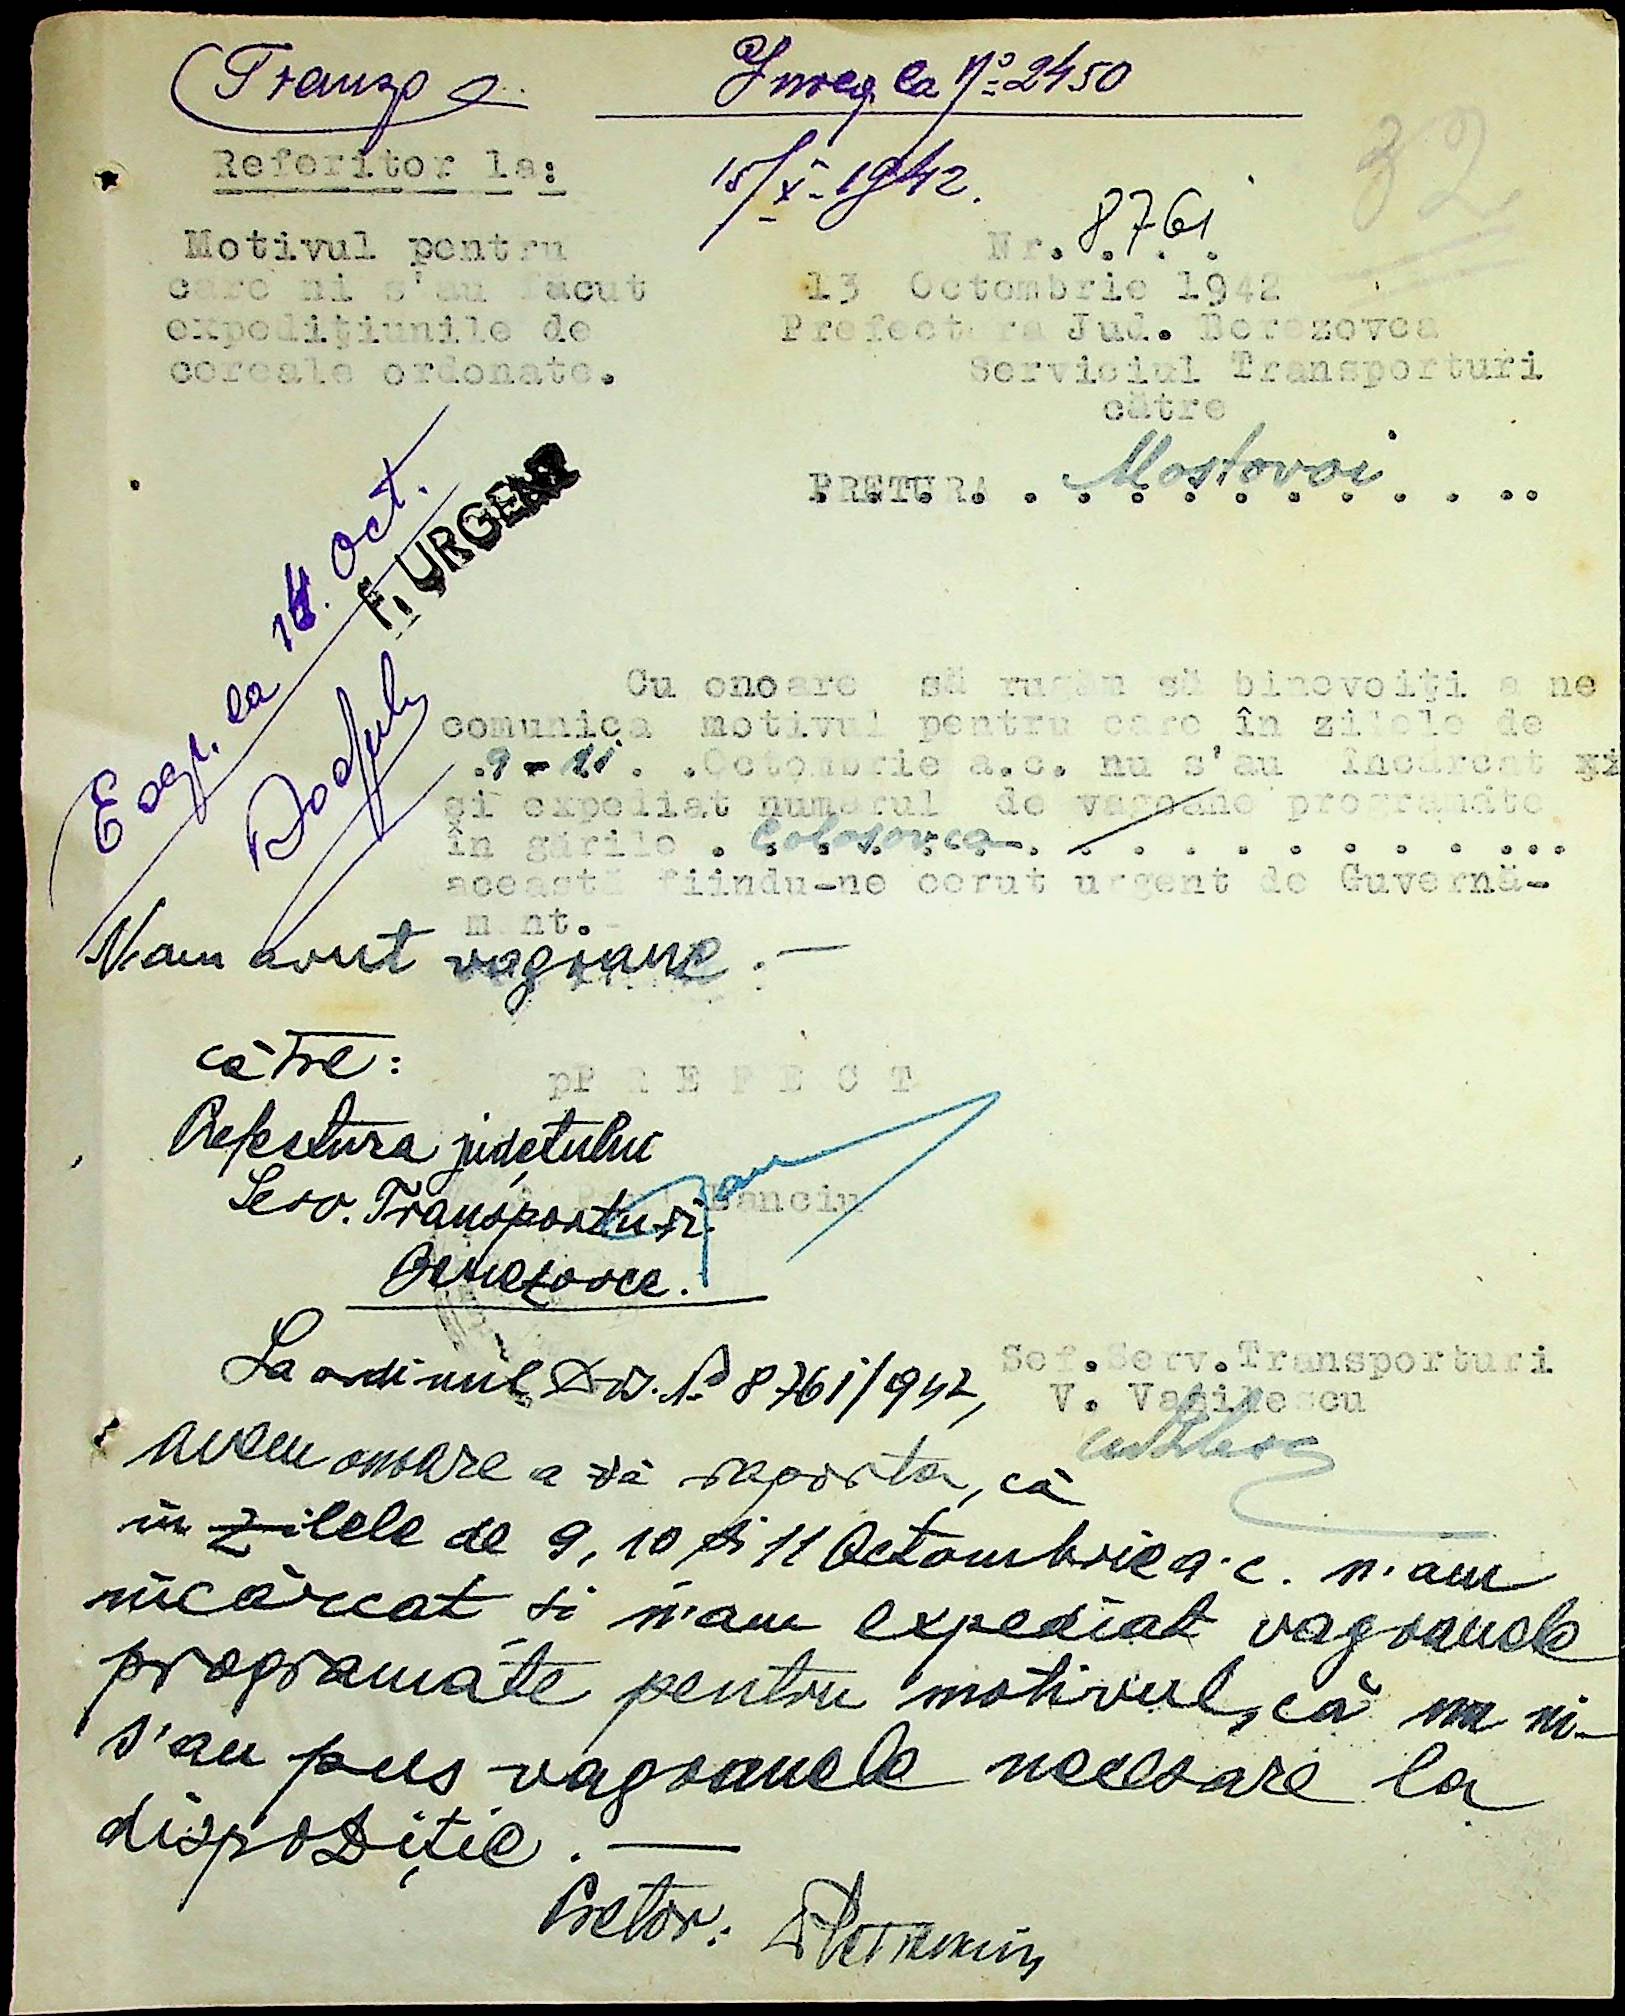 Inreg la Nº 2450
15/X-1942.
32
Referitor la:
Motivul pentru
care ni s'au făcut
expedițiunile de
cereale ordonate.
Nr. 8761
13 Octombrie 1942
Prefectura Jud. Berezovca
Serviciul Transporturi
către
PRETURA Mostovoi
F. URGENT
Exp. la 14. Oct.
Cu onoare să rugăm să binevoiți a ne
comunica motivul pentru care în zilele de
9-11. Octombrie a.c. nu s'au încărcat și
și expediat numărul de vagoane programate
în gările Colosovca
această fiindu-ne cerut urgent de Guvernă-
mânt.-
N'am avut vagoane.-
către:
pPREFECT
Prefectura județului
Serv. Transporturi
Berezovca.
Danciu
La ordinul Dv. Nº 8761/942,
Șef.Serv.Transporturi
V. Vasilescu
avem onoare a vă raporta, că
în zilele de 9, 10 și 11 Octombrie a.c. n'am
încărcat și n'am expediat vagoanele
programate pentru motivul, că nu ni-
s'au pus vagoanele necesare la
dispoziție.-
Pretor: